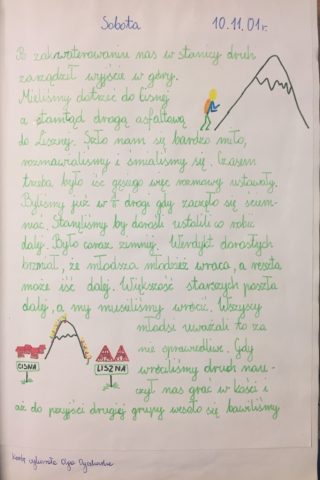 Sobota 10.11.01r.
Po zakwaterowaniu nas w stanicy druh
zarządził wyjście w góry.
Mieliśmy dotrzeć do Cisnej
a stamtąd drogą asfaltową
do Liszny. Szło nam się bardzo miło,
rozmawialiśmy i śmialiśmy się. Czasem
trzeba było iść gęsiego więc rozmowy ustawały.
Byliśmy już w drogi gdy zaczęło się ściem-
niać. Stanęliśmy by dorośli ustalili co robić
dalej. Było coraz zimniej. Werdykt dorosłych
brzmiał, że młodsza młodzież wraca, a reszta
może iść dalej. Większość starszych poszła
dalej, a my musieliśmy wrócić. Wszyscy
młodsi uważali to za
nie sprawiedliwe. Gdy
wróciliśmy druch nau-
czył nas grać w kości i
aż do przyjści drugiej grupy wesoło się bawiliśmy
CISNA
LISZNA
Kartę wykonała Olga